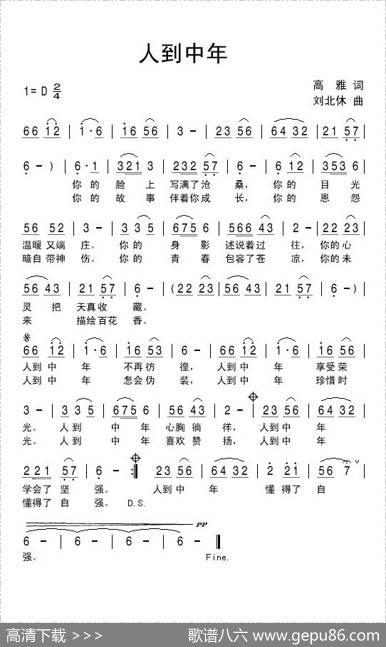 人到中年
1=D 2/4
高 雅 词
刘北休 曲
66 12 | 1·6 | 16 56 | 3 - | 23 56 | 64 32 | 21 57 |
6 -) | 6·1 | 321 3 | 232 57 | 6 - | 36 12 | 353 6 |
你的 脸 上 写满了沧 桑, 你的 目光
你的 故 事 伴着你成 长, 你的 恩怨
56 52 | 3 - | 3 3 5 | 675 6 | 566 43 | 2 - | 223 56 |
温暖又端 庄。 你的 身 影 述说着过 往, 你的心
暗自带神 伤。 你的 青 春 包容了苍 凉, 你的未
56 43 | 21 57 | 6 - | (22 23 | 56 43 | 21 57 | 6 -) |
灵 把 天真收 藏。
来 描绘百花 香。
66 12 | 1·6 | 16 53 | 6 - | 66 12 | 1·6 | 16 56 |
人到中 年 不再彷 徨, 人到中 年 享受荣
人到中 年 怎会伪 装, 人到中 年 珍惜时
3 - | 3 3 5 | 675 6 | 56 43 | 2 - | 23 56 | 64 32 |
光。 人到 中 年 心胸徜 徉, 人到中 年
光。 人到 中 年 喜欢赞 扬, 人到中 年
221 57 | 6 - :| 23 56 | 64 32 | 2 21 | 56 7 |
学会了坚 强。 人到中 年 懂得了 自
懂得了自 强。 D.S.
pp
6 - | 6 - | 6 - | 6 - | 6 - ||
强。 Fine.
高清下载 >>> 歌谱八六 www.gepu86.com